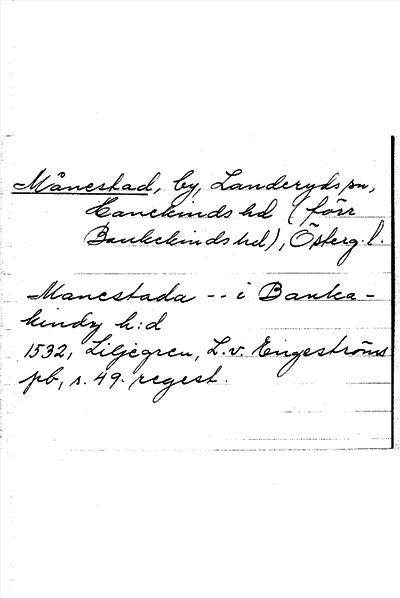 Månestad, by, Landeryds sn,
Hanekinds hd (förr
Bankekinds hd), Österg.l.
Manestada -- i Banka-
kindz h:d
1532, Liljegren, L.v. Engeströms
pb, s. 49. regest.